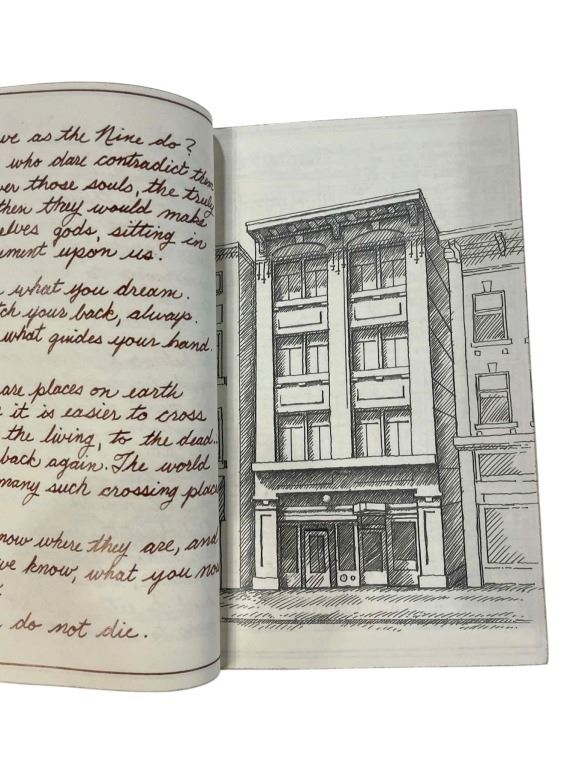 as the Nine do?
who dare contradict them
those souls, the truly
then they would make
gods, sitting in
upon us.
what you dream.
your back, always.
what guides your hand.
are places on earth
it is easier to cross
the living, to the dead...
back again. The world
many such crossing
where they are, and
know, what you
do not die.